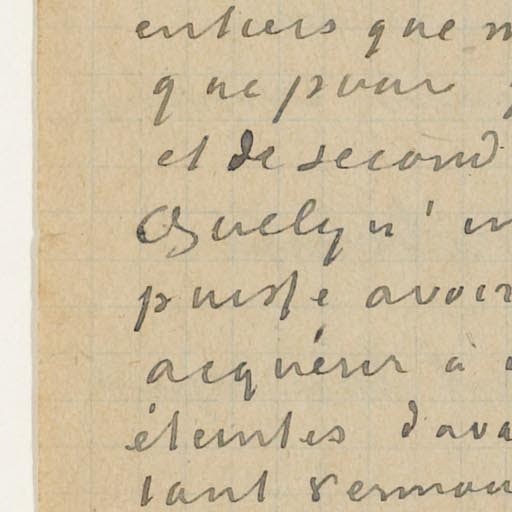 entiers que
que pour
et de second
Quelqu'un
puisse avoir
acquérir à
éteintes dava
tant sermon